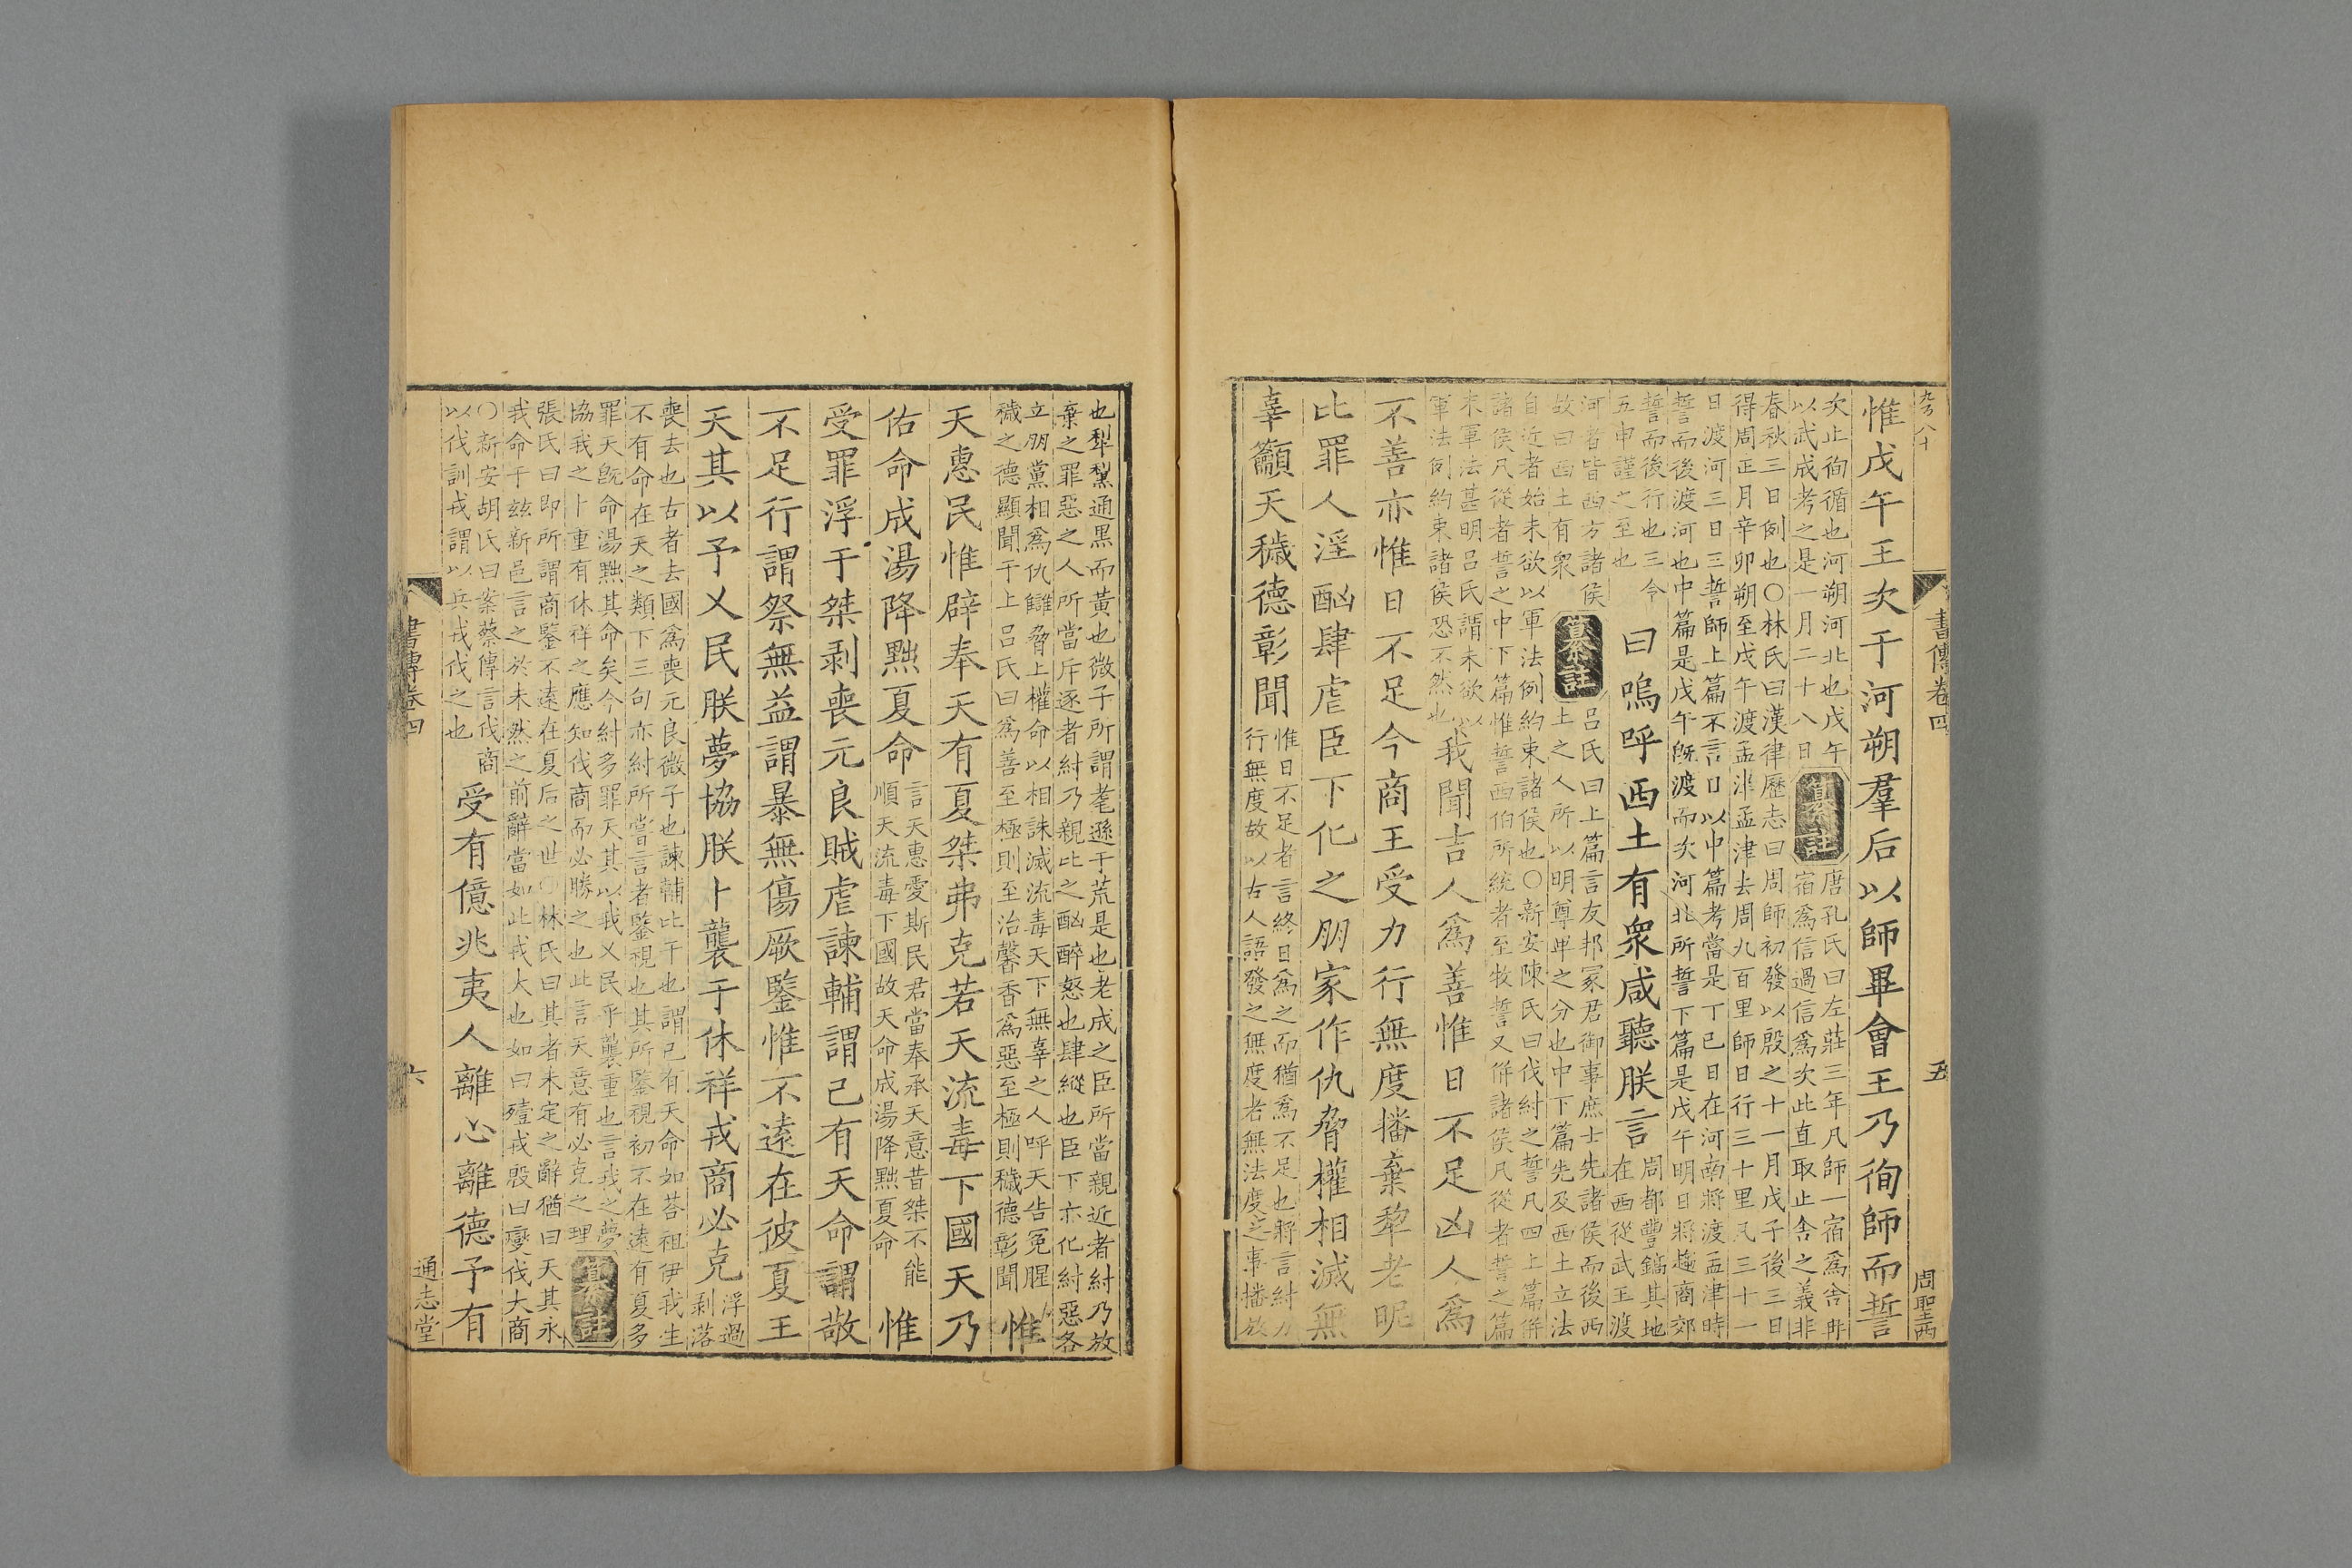 九百八十
書傳卷四
五
周聖西
惟戊午王次于河朔羣后以師畢會王乃徇師而誓
次止徇循也河朔河北也戊午
以武成考之是一月二十八日
纂註
唐孔氏曰左莊三年凡師一宿爲舍再
宿爲信過信爲次此直取止舍之義非
春秋三日例也○林氏曰漢律歷志曰周師初發以殷之十一月戊子後三日
得周正月辛卯朔至戊午渡孟津孟津去周九百里師日行三十里凡三十一
日渡河三日三誓師上篇不言日以中篇考當是丁巳日在河南將渡孟津時
誓而後渡河也中篇是戊午旣渡而次河北所誓下篇是戊午明日將趨商郊
誓而後行也三令
五申謹之至也
曰嗚呼西土有衆咸聽朕言
周都豐鎬其地
在西從武王渡
河者皆西方諸侯
故曰西土有衆
纂註
呂氏曰上篇言友邦冢君御事庶士先諸侯而後西
上之人所以明尊卑之分也中下篇先及西土立法
自近者始未欲以軍法例約束諸侯也○新安陳氏曰伐紂之誓凡四上篇倂
諸侯凡從者誓之中下篇惟誓西伯所統者至牧誓又倂諸侯凡從者誓之篇
末軍法甚明呂氏謂未欲以
軍法例約束諸侯恐不然也
我聞吉人爲善惟日不足凶人爲
不善亦惟日不足今商王受力行無度播棄犂老昵
比罪人淫酗肆虐臣下化之朋家作仇脅權相滅無
辜籲天穢德彰聞
惟日不足者言終日爲之而猶爲不足也將言紂力
行無度故以古人語發之無度者無法度之事播放
也犂黧通黑而黃也微子所謂耄遜于荒是也老成之臣所當親近者紂乃放
棄之罪惡之人所當斥逐者紂乃親比之酗醉怒也肆縱也臣下亦化紂惡各
立朋黨相爲仇讎脅上權命以相誅滅流毒天下無辜之人呼天告冤腥
穢之德顯聞于上呂氏曰爲善至極則至治馨香爲惡至極則穢德彰聞
惟
天惠民惟辟奉天有夏桀弗克若天流毒下國天乃
佑命成湯降黜夏命
言天惠愛斯民君當奉承天意昔桀不能
順天流毒下國故天命成湯降黜夏命
惟
受罪浮于桀剥喪元良賊虐諫輔謂己有天命謂敬
不足行謂祭無益謂暴無傷厥鑒惟不遠在彼夏王
天其以予乂民朕夢協朕卜襲于休祥戎商必克
浮過
剥落
喪去也古者去國爲喪元良微子也諫輔比干也謂己有天命如荅祖伊我生
不有命在天之類下三句亦紂所嘗言者鑒視也其所鑒視初不在遠有夏多
罪天旣命湯黜其命矣今紂多罪天其以我乂民乎襲重也言我之夢
協我之卜重有休祥之應知伐商而必勝之也此言天意有必克之理
纂註
張氏曰即所謂商鑒不遠在夏后之世○林氏曰其者未定之辭猶曰天其永
我命于兹新邑言之於未然之前辭當如此戎大也如曰殪戎殷曰燮伐大商
○新安胡氏曰案蔡傳言伐商
以伐訓戎謂以兵戎伐之也
受有億兆夷人離心離德予有
書傳卷四
六
通志堂